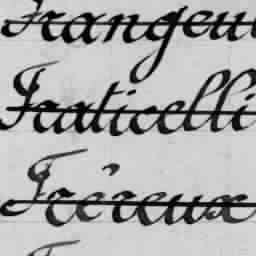 Frangeu
Fraticelli
Fréreux